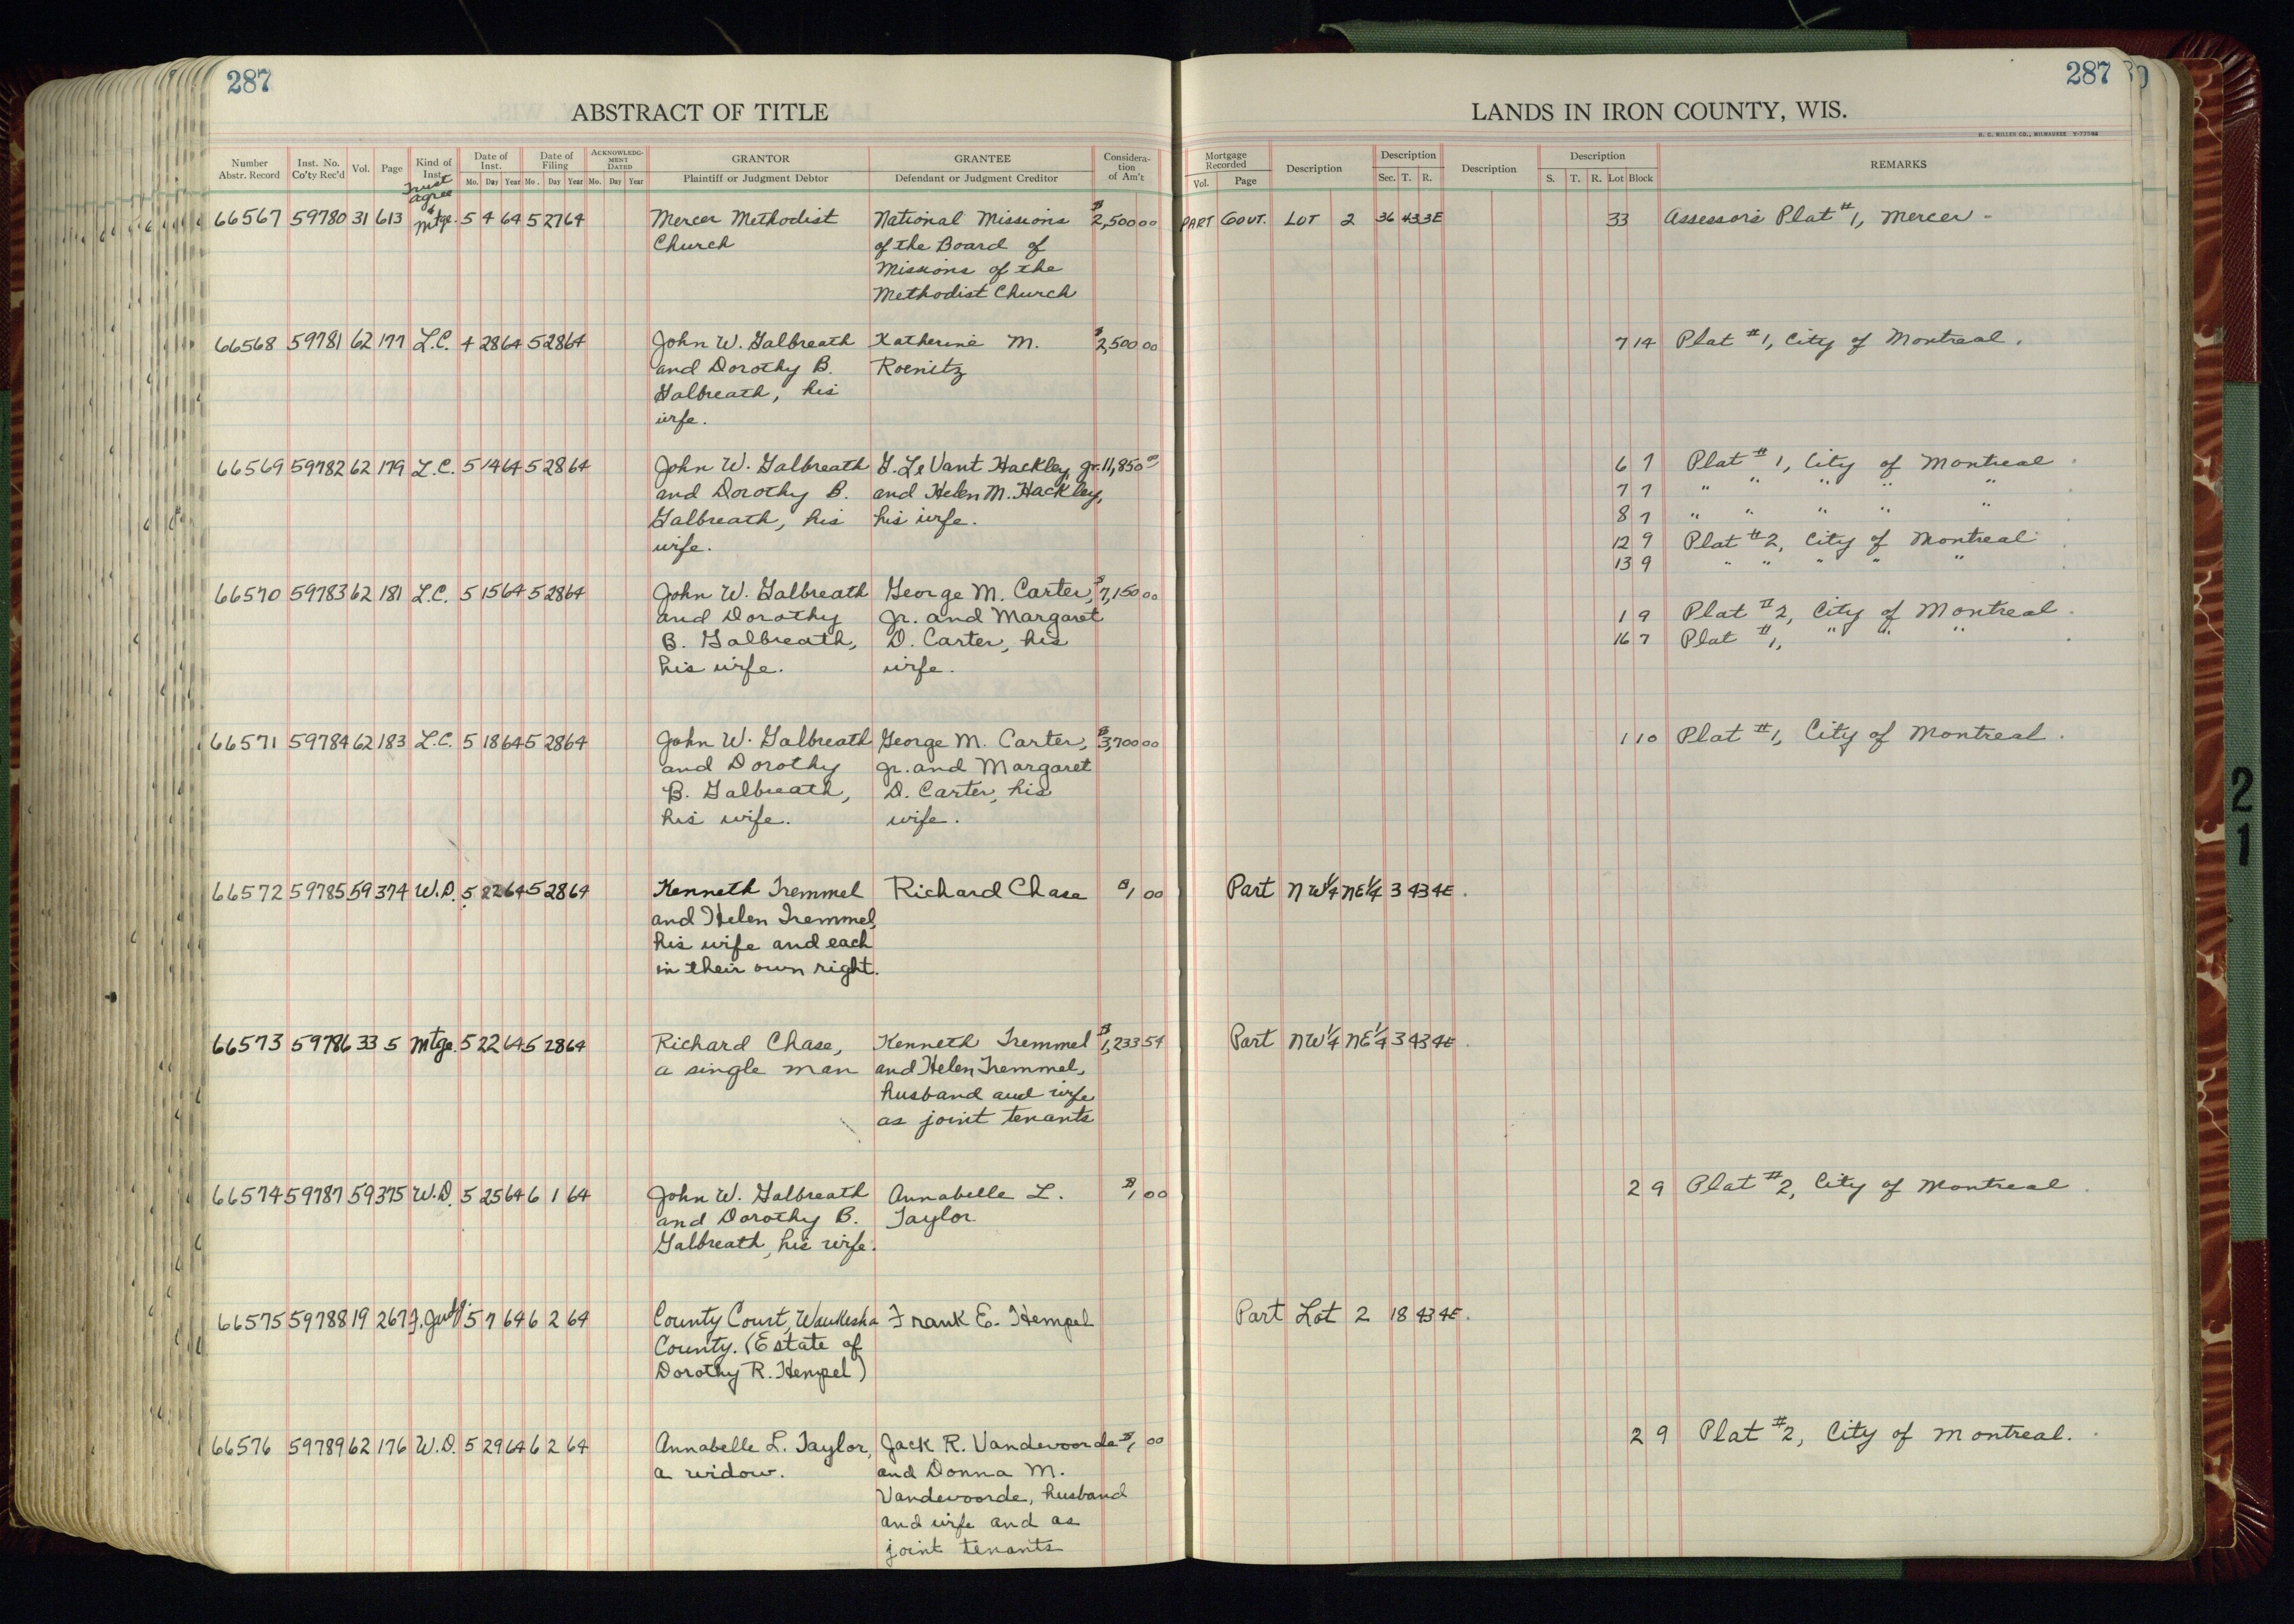 287
287
ABSTRACT OF TITLE
LANDS IN IRON COUNTY, WIS.
H. C. MILLER CO., MILWAUKEE
Number Abstr. Record Inst. No. Co'ty Rec'd Vol. Page Kind of Inst. Date of Inst. Mo. Day Year Date of Filing Mo. Day Year ACKNOWLEDGMENT DATED Mo. Day Year GRANTOR Plaintiff or Judgment Debtor GRANTEE Defendant or Judgment Creditor Consideration of Am't
Mortgage Recorded Vol. Page Description Description Sec. T. R. Description Description S. T. R. Lot Block REMARKS
Trust
agree
&
66567 59780 31 613 Mtge. 5 4 64 5 27 64 Mercer Methodist National Missions $2,500 00 PART GOVT. LOT 2 36 43 3E 33 Assessor's Plat #1, Mercer
Church of the Board of
Missions of the
Methodist Church
66568 59781 62 177 L.C. 4 28 64 5 28 64 John W. Galbreath Katherine M. $2,500 00 7 14 Plat #1, City of Montreal.
and Dorothy B. Roenitz
Galbreath, his
wife.
66569 59782 62 179 L.C. 5 14 64 5 28 64 John W. Galbreath G. LeVant Hackley, Jr. 11,850 00 6 7 Plat #1, City of Montreal
and Dorothy B. and Helen M. Hackley, 7 7 " " " " "
Galbreath, his his wife. 8 7 " " " " "
wife. 12 9 Plat #2, City of Montreal
13 9 " " " " "
66570 59783 62 181 L.C. 5 15 64 5 28 64 John W. Galbreath George M. Carter, $7,150 00
and Dorothy Jr. and Margaret 1 9 Plat #2, City of Montreal
B. Galbreath, D. Carter, his 16 7 Plat #1, " " "
his wife. wife.
66571 59784 62 183 L.C. 5 18 64 5 28 64 John W. Galbreath George M. Carter, $3,700 00 1 10 Plat #1, City of Montreal.
and Dorothy Jr. and Margaret
B. Galbreath, D. Carter, his
his wife. wife.
66572 59785 59 374 W.D. 5 22 64 5 28 64 Kenneth Tremmel Richard Chase $1 00 Part NW¼ NE¼ 3 43 4E.
and Helen Tremmel,
his wife and each
in their own right.
66573 59786 33 5 Mtge. 5 22 64 5 28 64 Richard Chase, Kenneth Tremmel $1,233 54 Part NW¼ NE¼ 3 43 4E.
a single man and Helen Tremmel,
husband and wife
as joint tenants
66574 59787 59 375 W.D. 5 25 64 6 1 64 John W. Galbreath Annabelle L. $1, 00 2 9 Plat #2, City of Montreal
and Dorothy B. Taylor
Galbreath, his wife.
66575 59788 19 267 F. Judg. 5 7 64 6 2 64 County Court, Waukesha Frank E. Hempel Part Lot 2 18 43 4E.
County. (Estate of
Dorothy R. Hempel)
66576 59789 62 176 W.D. 5 29 64 6 2 64 Annabelle L. Taylor, Jack R. Vandevoorde $1, 00 2 9 Plat #2, City of Montreal.
a widow. and Donna M.
Vandevoorde, husband
and wife and as
joint tenants
21